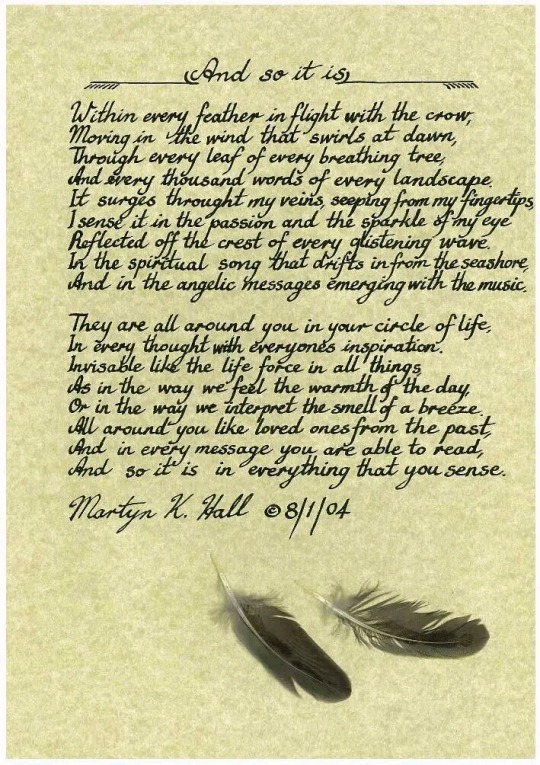 And so it is
Within every feather in flight with the crow,
Moving in the wind that swirls at dawn,
Through every leaf of every breathing tree,
And every thousand words of every landscape.
It surges throught my veins, seeping from my fingertips,
I sense it in the passion and the sparkle of my eye
Reflected off the crest of every glistening wave.
In the spiritual song that drifts in from the seashore,
And in the angelic messages emerging with the music.
They are all around you in your circle of life,
In every thought with everyones inspiration.
Invisable like the life force in all things,
As in the way we feel the warmth of the day,
Or in the way we interpret the smell of a breeze.
All around you like loved ones from the past,
And in every message you are able to read,
And so it is in everything that you sense.
Martyn K. Hall © 8/1/04